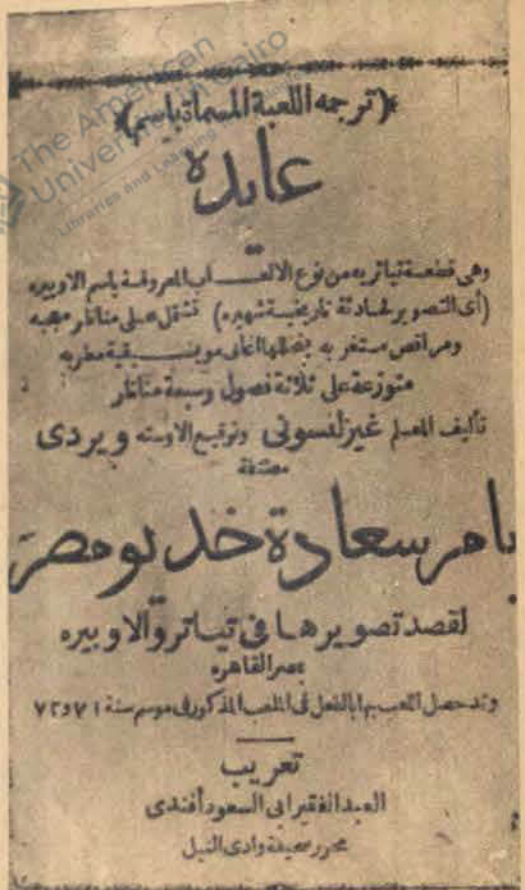 The American
University in Cairo
Libraries and Learning
﴿ترجمه اللعبة المسماة باسم﴾
عايدة
وهى قطعة تياتريه من نوع الالعاب المعروفة باسم الاوبيره
(أى التصوير لحادثة تاريخية شهيره) تشتمل على مناظر عجيبه
ومراقص مستغربه يتخللها اغانى موسيقية مطربه
متوزعة على ثلاثة فصول وسبعة مناظر
تأليف المعلم غيزلنسونى وتوقيع الاوسته ويردى
مصنفة
بامر سعادة خديو مصر
لقصد تصويرها فى تياترو الاوبيره
بمصر القاهره
وقد حصل اللعب بها بالفعل فى الملعب المذكور فى موسم سنة ٧١ و٧٢
تعريب
العبد الفقير ابى السعود أفندى
محرر صحيفة وادى النيل